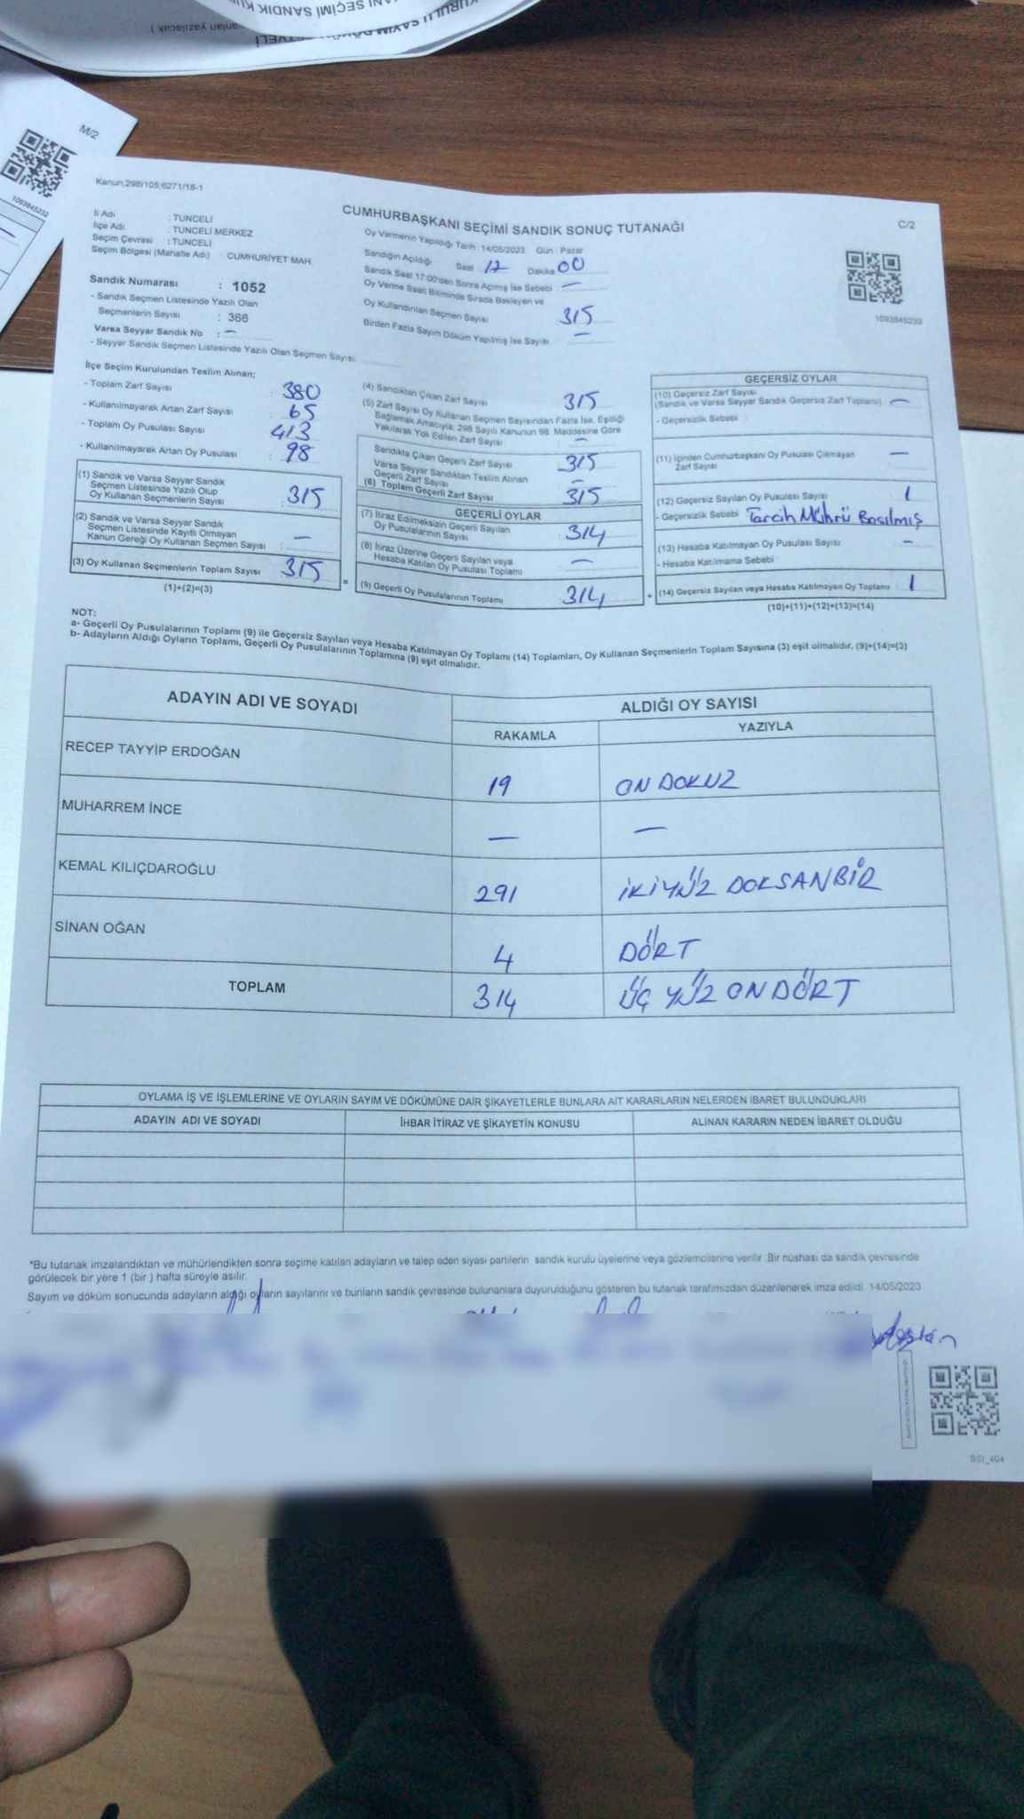 M/2
1093845232
Kanun,298/105;6271/18-1
CUMHURBAŞKANI SEÇİMİ SANDIK SONUÇ TUTANAĞI
C/2
İl Adı : TUNCELİ
İlçe Adı : TUNCELİ MERKEZ
Seçim Çevresi : TUNCELİ
Seçim Bölgesi (Mahalle Adı) : CUMHURİYET MAH.
Oy Vermenin Yapıldığı Tarih : 14/05/2023 Gün : Pazar
Sandığın Açıldığı Saat 17 Dakika 00
Sandık Saat 17:00'den Sonra Açılmış İse Sebebi —
Oy Verme Saati Bitiminde Sırada Bekleyen ve
Oy Kullandırılan Seçmen Sayısı 315
Birden Fazla Sayım Döküm Yapılmış İse Sayısı —
1093845233
Sandık Numarası : 1052
- Sandık Seçmen Listesinde Yazılı Olan
Seçmenlerin Sayısı : 366
Varsa Seyyar Sandık No : —
- Seyyar Sandık Seçmen Listesinde Yazılı Olan Seçmen Sayısı
İlçe Seçim Kurulundan Teslim Alınan;
- Toplam Zarf Sayısı 380
- Kullanılmayarak Artan Zarf Sayısı 65
- Toplam Oy Pusulası Sayısı 413
- Kullanılmayarak Artan Oy Pusulası 98
(1) Sandık ve Varsa Seyyar Sandık
Seçmen Listesinde Yazılı Olup
Oy Kullanan Seçmenlerin Sayısı 315
(2) Sandık ve Varsa Seyyar Sandık
Seçmen Listesinde Kayıtlı Olmayan
Kanun Gereği Oy Kullanan Seçmen Sayısı —
(3) Oy Kullanan Seçmenlerin Toplam Sayısı 315
(1)+(2)=(3)
(4) Sandıktan Çıkan Zarf Sayısı 315
(5) Zarf Sayısı Oy Kullanan Seçmen Sayısından Fazla İse, Eşitliği
Sağlamak Amacıyla, 298 Sayılı Kanunun 98. Maddesine Göre
Yakılarak Yok Edilen Zarf Sayısı —
Sandıkta Çıkan Geçerli Zarf Sayısı 315
Varsa Seyyar Sandıktan Teslim Alınan
Geçerli Zarf Sayısı —
(6) Toplam Geçerli Zarf Sayısı 315
GEÇERLİ OYLAR
(7) İtiraz Edilmeksizin Geçerli Sayılan
Oy Pusulalarının Sayısı 314
(8) İtiraz Üzerine Geçerli Sayılan veya
Hesaba Katılan Oy Pusulası Toplamı —
(9) Geçerli Oy Pusulalarının Toplamı 314
GEÇERSİZ OYLAR
(10) Geçersiz Zarf Sayısı
(Sandık ve Varsa Seyyar Sandık Geçersiz Zarf Toplamı) —
- Geçersizlik Sebebi
(11) İçinden Cumhurbaşkanı Oy Pusulası Çıkmayan
Zarf Sayısı —
(12) Geçersiz Sayılan Oy Pusulası Sayısı 1
- Geçersizlik Sebebi Tarcih Mührü Basılmış
(13) Hesaba Katılmayan Oy Pusulası Sayısı —
- Hesaba Katılmama Sebebi
(14) Geçersiz Sayılan veya Hesaba Katılmayan Oy Toplamı 1
(10)+(11)+(12)+(13)=(14)
NOT:
a- Geçerli Oy Pusulalarının Toplamı (9) ile Geçersiz Sayılan veya Hesaba Katılmayan Oy Toplamı (14) Toplamları, Oy Kullanan Seçmenlerin Toplam Sayısına (3) eşit olmalıdır. (9)+(14)=(3)
b- Adayların Aldığı Oyların Toplamı, Geçerli Oy Pusulalarının Toplamına (9) eşit olmalıdır.
ADAYIN ADI VE SOYADI
ALDIĞI OY SAYISI
RAKAMLA
YAZIYLA
RECEP TAYYİP ERDOĞAN 19 ON DOKUZ
MUHARREM İNCE — —
KEMAL KILIÇDAROĞLU 291 İKİYÜZ DOKSANBİR
SİNAN OĞAN 4 DÖRT
TOPLAM 314 ÜÇ YÜZ ONDÖRT
OYLAMA İŞ VE İŞLEMLERİNE VE OYLARIN SAYIM VE DÖKÜMÜNE DAİR ŞİKAYETLERLE BUNLARA AİT KARARLARIN NELERDEN İBARET BULUNDUKLARI
ADAYIN ADI VE SOYADI
İHBAR İTİRAZ VE ŞİKAYETİN KONUSU
ALINAN KARARIN NEDEN İBARET OLDUĞU
*Bu tutanak imzalandıktan ve mühürlendikten sonra seçime katılan adayların ve talep eden siyasi partilerin sandık kurulu üyelerine veya gözlemcilerine verilir. Bir nüshası da sandık çevresinde
görülecek bir yere 1 (bir ) hafta süreyle asılır.
Sayım ve döküm sonucunda adayların aldığı oyların sayılarını ve bunların sandık çevresinde bulunanlara duyurulduğunu gösteren bu tutanak tarafımızdan düzenlenerek imza edildi. 14/05/2023